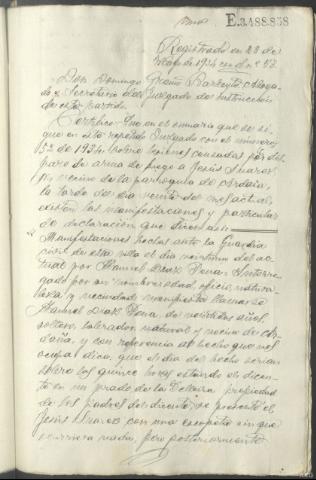 E.3.488.858
Registrado en 28 de
Mayo de 1934 con el nº 47
Don Domingo Barreiro, Aboga-
do y Secretario del Juzgado de Instrucción
de este partido.
Certifico: Que en el sumario que se si-
gue en este repetido Juzgado con el número
52 de 1934, sobre lesiones causadas por dis-
paro de arma de fuego a Jesús Suarez
vecino de la parroquia de Ardaña,
la tarde del día veinte del mes actual,
existen las manifestaciones y particular
de declaración que dicen así:
Manifestaciones hechas ante la Guardia
civil de esta villa el día veintiuno del ac-
tual por Manuel Diaz Pena. Interro-
gado por su nombre, edad, oficio, natura-
leza y vecindad manifiesta llamarse
Manuel Diaz Pena, de años
soltero, labrador, natural y vecino de Ar-
daña, y con referencia al hecho que nos
ocupa dice, que el día del hecho serian
sobre las quince horas estando el dicen-
te en un prado de la propiedad
de los padres del dicente, se presentó el
Jesús Suarez con una escopeta sin que
ocurriera nada, pero posteriormente